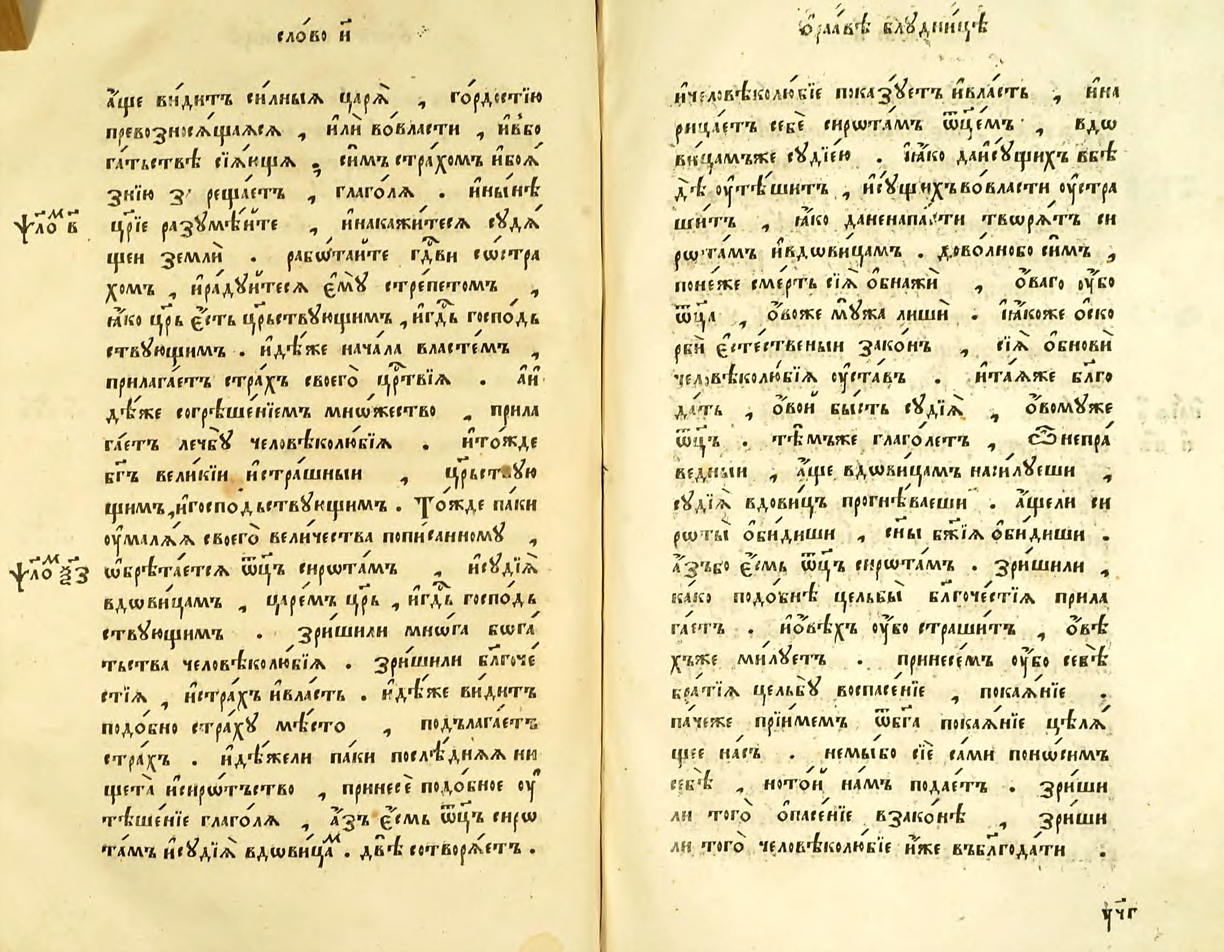 сло́во и҃
а҆́ще ви́дитъ си́лныѧ царѧ̀ , го́рдостїю
превозносѧ́щаѧсѧ , и҆лѝ во́власти , и҆вбо
га́тьствѣ сїѧ́ющѧ , си́мъ стра́хомъ и҆боѧ́
знїю з̾ реща́етъ , глаго́лѧ . и҆ны́нѣ
ѱало́м в҃
цр҃їе разꙋмѣ́йте , и҆накажи́тесѧ сꙋдѧ́
щеи землѝ . рабѡ́тайте гдⷭ҇ви сѡстра́
хомъ , и҆ра́дꙋйтесѧ є҆мꙋ̀ стре́петомъ ,
ꙗ҆́ко цр҃ь є҆́сть цр҃ьствꙋющимъ , и҆гдⷭ҇ь госпо́дь
ствꙋющимъ . и҆дѣ́же нача́ла власте́мъ ,
прилага́етъ стра́хъ своегѡ̀ црⷭ҇твїѧ . а҆и
дѣ́же согрѣше́нїемъ мнѡ́жество , прила
га́етъ лечбꙋ̀ человѣколю́бїѧ . и҆то́жде
бг҃ъ вели́кїи и҆стра́шныи , цр҃ьствꙋю
щимъ , и҆госпо́дьствꙋющимъ . То́жде па́ки
ᲂу҆малѧ́ѧ своегѡ̀ вели́чества попи́санномꙋ ,
ѱало́м ѯ҃з
ѡ҆брѣта́етсѧ ѿц҃ъ сирѡта́мъ , и҆сꙋдїѧ̀
вдѡви́цамъ , царе́мъ цр҃ь , и҆гдⷭ҇ь госпо́дь
ствꙋющимъ . зри́шили мнѡ́га бѡга́
тьства человѣколю́бїѧ . зри́шили бл҃гоче́
стїѧ , и҆стра́хъ и҆вла́сть . и҆дѣ́же ви́дитъ
подо́бно стра́хꙋ мѣ́сто , подълага́етъ
стра́хъ . и҆дѣ́жели па́ки послѣ́днѧѧ ни
щета̀ и҆сирѡ́тьство , принесѐ подо́бное ᲂу҆
тѣше́нїе глаго́лѧ , а҆́зъ є҆́смь ѿц҃ъ сирѡ
та́мъ и҆сꙋдїѧ̀ вдѡви́цам . двѣ̀ сотворѧ́етъ .
ѻ҆раа́вѣ блꙋдни́цѣ
и҆человѣколю́бїе показꙋ́етъ и҆вла́сть , и҆на
рица́етъ себѐ сирѡта́мъ ѿц҃емъ , вдѡ
ви́цамъже сꙋдїе́ю . ꙗ҆́ко даи҆сꙋ́щихъ вбѣ
дѣ̀ ᲂу҆тѣ́шитъ , и҆сꙋ́щихъ во́власти ᲂу҆стра
ши́тъ , ꙗ҆́ко даненапа́сти творѧ́тъ си
рѡта́мъ и҆вдѡви́цам . дово́лнобо си́мъ ,
поне́же сме́рть сїѧ̀ ѻ҆бнажѝ , ѻ҆́ваго ᲂу҆́бо
ѿц҃а , ѻ҆́воже мꙋ́жа лишѝ . ꙗ҆́коже ѻ҆ско
рбѝ є҆сте́ственыи зако́нъ , сїѧ̀ ѻ҆бновѝ
человѣколю́бїѧ ᲂу҆ста́въ . и҆та́ѧже бл҃го
да́ть , ѻ҆во́й бы́сть сꙋдїѧ̀ , ѻ҆во́мꙋже
ѿц҃ъ . тѣ́мъже глаго́летъ , ѽнепра́
ведныи , а҆́ще вдѡви́цамъ наси́лꙋеши ,
сꙋдїѧ̀ вдови́цъ прогнѣ́ваеши . а҆́щели си
рѡты̀ ѻ҆би́диши , сн҃ы бж҃їѧ ѻ҆би́диши .
а҆́зъбо є҆́смь ѿц҃ъ сирѡта́мъ . зри́шили ,
ка́ко подо́бнѣ цельбы̀ бл҃гоче́стїѧ прила
га́етъ . и҆ѻ҆вѣ́хъ ᲂу҆́бо страши́тъ , ѻ҆вѣ́
хъже ми́лꙋетъ . принесе́мъ ᲂу҆́бо себѣ̀
бра́тїѧ цельбꙋ̀ воспасе́нїе , покаѧ́нїе .
па́чеже прїи́мемъ ѿбг҃а покаѧ́нїе цѣлѧ́
щее на́съ . немы́бо сїѐ са́ми понѡ́симъ
себѣ̀ , нотои҆̀ на́мъ подае́тъ . зри́ши
ли того̀ ѻ҆пасе́нїе взако́нѣ , зри́ши
ли того̀ человѣколю́бїе и҆́же въбл҃года́ти .
ꙋ҃чг